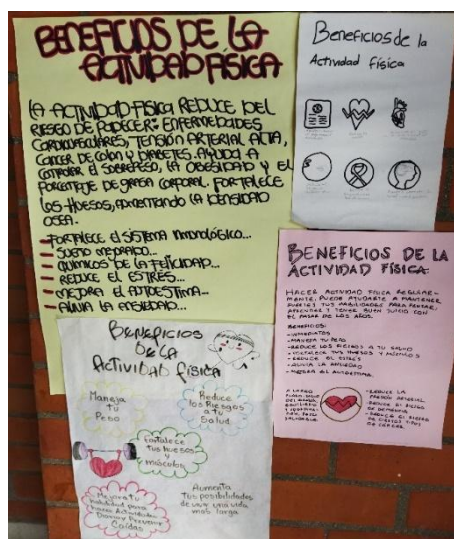 BENEFICIOS DE LA
ACTIVIDAD FÍSICA
LA ACTIVIDAD FÍSICA REDUCE DEL
RIESGO DE PADECER: ENFERMEDADES
CARDIOVASCULARES, TENSIÓN ARTERIAL ALTA,
CANCER DE COLON Y DIABETES. AYUDA A
CONTROLAR EL SOBREPESO, LA OBESIDAD Y EL
PORCENTAJE DE GRASA CORPORAL. FORTALECE
LOS HUESOS, AUMENTANDO LA DENSIDAD
OSEA.
- FORTALECE EL SISTEMA INMONOLÓGICO...
- SUEÑO MEJORADO...
- QUIMICOS DE LA FELICIDAD...
- REDUCE EL ESTRÉS...
- MEJORA EL AUTOESTIMA...
- ALIVIA LA ANSIEDAD...
Beneficios de la
Actividad Física
BENEFICIOS DE LA
ACTIVIDAD FÍSICA:
HACER ACTIVIDAD FÍSICA REGULAR-
MENTE, PUEDE AYUDARTE A MANTENER
FUERTES TUS HABILIDADES PARA PENSAR,
APRENDER Y TENER BUEN JUICIO CON
EL PASAR DE LOS AÑOS.
BENEFICIOS:
- MANEJA TU PESO
- REDUCE LOS RIESGOS A TU SALUD
- FORTALECE TUS HUESOS Y MÚSCULOS
- REDUCE EL ESTRÉS
- ALIVIA LA ANSIEDAD
- MEJORA EL AUTOESTIMA.
A LARGO
PLAZO
- REDUCE LA
PRESIÓN ARTERIAL.
- REDUCE EL RIESGO
DE DEMENCIA
- REDUCE EL RIESGO
DE CIERTOS TIPOS
DE CÁNCER.
Beneficios
DE LA
ACTIVIDAD física
Maneja
tu
Peso
Reduce
los Riesgos
a tu
Salud
Fortalece
Tus huesos
y
músculos
Mejora tu
habilidad para
hacer Actividades
Diarias y Prevenir
Caídas
Aumenta
Tus posibilidades
de vivir una vida
más larga